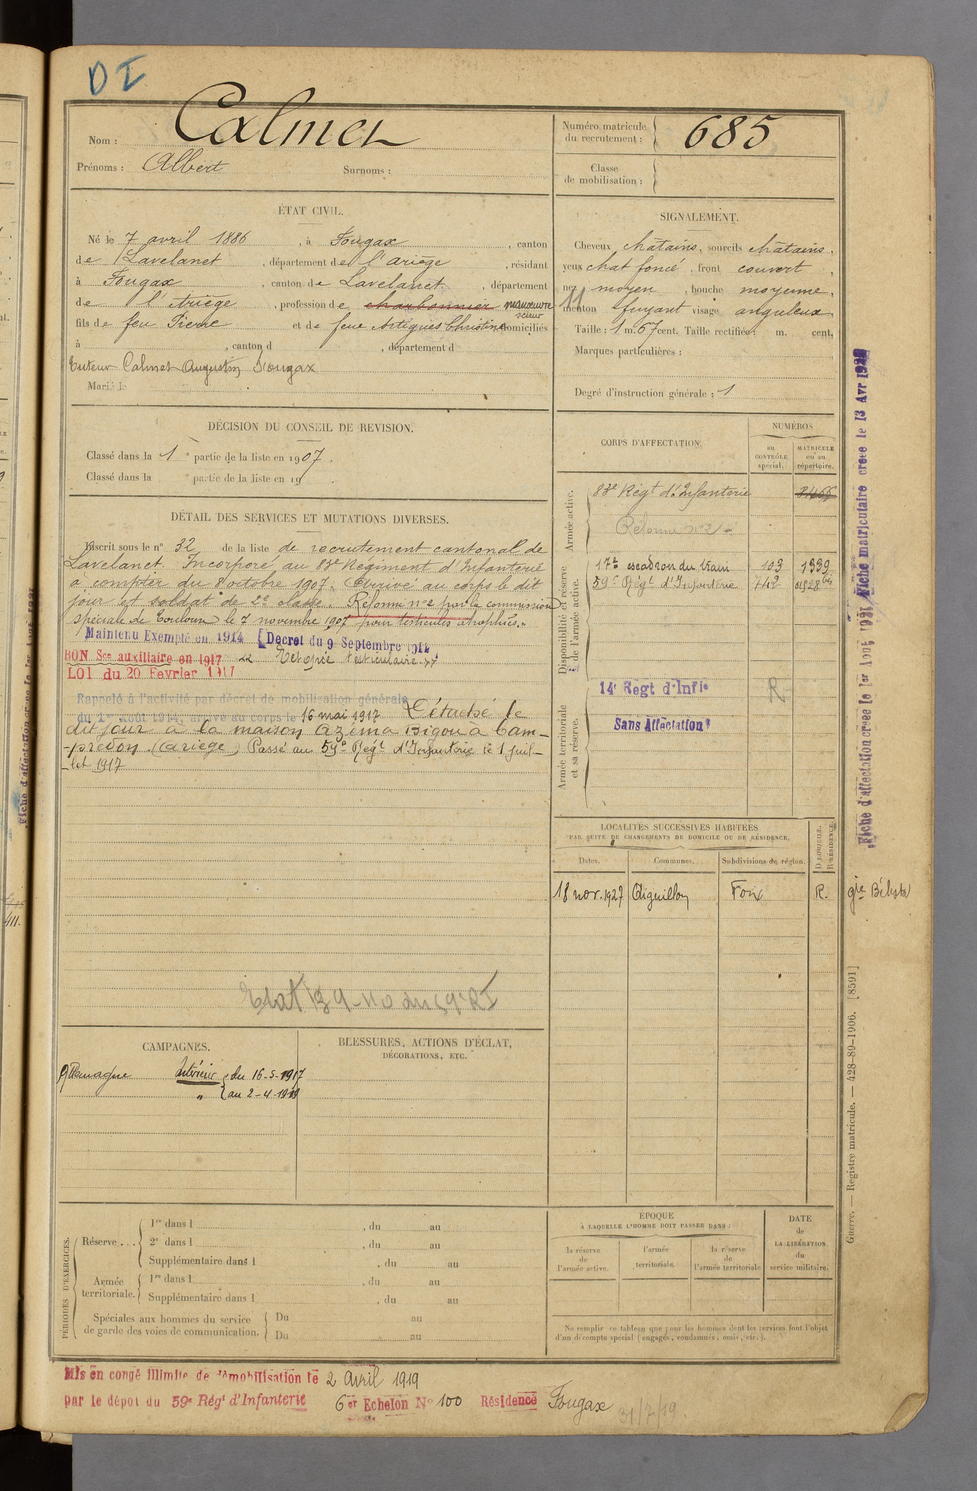 DI
Nom : Calmet
Prénoms : Albert Surnoms :
Numéro matricule du recrutement : 685
Classe de mobilisation :
ÉTAT CIVIL.
Né le 7 avril 1886, à Fougax, canton
de Lavelanet, département de l'Ariège, résidant
à Fougax, canton de Lavelanet, département
de l'Ariège, profession de charbonnier manœuvre
scieur
fils de feu Pierre et de feue Artigues Christine domiciliés
à , canton d , département d
Tuteur Calmet Augustin Fougax
Marié le
SIGNALEMENT.
Cheveux chatains, sourcils chatains,
yeux chat foncé, front couvert,
nez moyen, bouche moyenne,
menton fuyant visage anguleux
Taille : 1 m. 67 cent. Taille rectifiée : m. cent.
Marques particulières :
Degré d'instruction générale : 1
DÉCISION DU CONSEIL DE REVISION.
Classé dans la 1e partie de la liste en 1907.
Classé dans la e partie de la liste en 19
CORPS D'AFFECTATION.
NUMÉROS
au CONTRÔLE spécial.
MATRICULE ou au répertoire.
Armée active.
83e Régt d'Infanterie
Réforme n°2
Disponibilité et réserve de l'armée active.
17e escadron du train 103 1339
59e Régt d'Infanterie 742
Armée territoriale et sa réserve.
14e Regt d'Infie R
Sans Affectation
DÉTAIL DES SERVICES ET MUTATIONS DIVERSES.
Inscrit sous le n° 32 de la liste de recrutement cantonal de
Lavelanet. Incorporé au 83e Régiment d'Infanterie
à compter du 8 octobre 1907. Arrivé au corps le dit
jour et soldat de 2e classe. Réformé n°2 par la commission
spéciale de Toulouse le 7 novembre 1907 pour testicules atrophiés.
Maintenu Exempté en 1914 (Decret du 9 Septembre 1914
BON Sce auxiliaire en 1917 testiculaire
LOI du 20 Fevrier 1917
Rappelé à l'activité par décret de mobilisation générale
du 1er Août 1914, arrivé au corps le 16 mai 1917 Détaché le
dit jour à la maison Azéma Bigou à Cam-
-predon (Ariège) Passé au 59e Régt d'Infanterie le 1 juil-
-let 1917
LOCALITÉS SUCCESSIVES HABITÉES
PAR SUITE DE CHANGEMENTS DE DOMICILE OU DE RÉSIDENCE.
Dates. Communes. Subdivisions de région. DOMICILE. RÉSIDENCE.
18 nov. 1927 Aiguillon Foix R. gie Bélesta
CAMPAGNES.
Allemagne Intérieur du 16-5-1917
" au 2-4-1919
BLESSURES, ACTIONS D'ÉCLAT,
DÉCORATIONS, ETC.
PÉRIODES D'EXERCICES.
Réserve... 1re dans l , du au
2e dans l , du au
Supplémentaire dans l , du au
Armée territoriale. 1re dans l , du au
Supplémentaire dans l , du au
Spéciales aux hommes du service de garde des voies de communication. Du au
Du au
ÉPOQUE
À LAQUELLE L'HOMME DOIT PASSER DANS :
la réserve de l'armée active.
l'armée territoriale.
la réserve de l'armée territoriale
DATE de LA LIBÉRATION du service militaire.
Ne remplir ce tableau que pour les hommes dont les services font l'objet
d'un décompte spécial (engagés, condamnés, omis, etc.).
Mis en congé illimité de démobilisation le 2 avril 1919
par le dépôt du 59e Régt d'Infanterie 6e Echelon N° 100 Résidence Fougax
31/7/19
Fiche d'affectation créée le 1er Août 1931 Fiche matriculaire créée le 13 Avr
Guerre. — Registre matricule. — 428-89-1906. [8591]